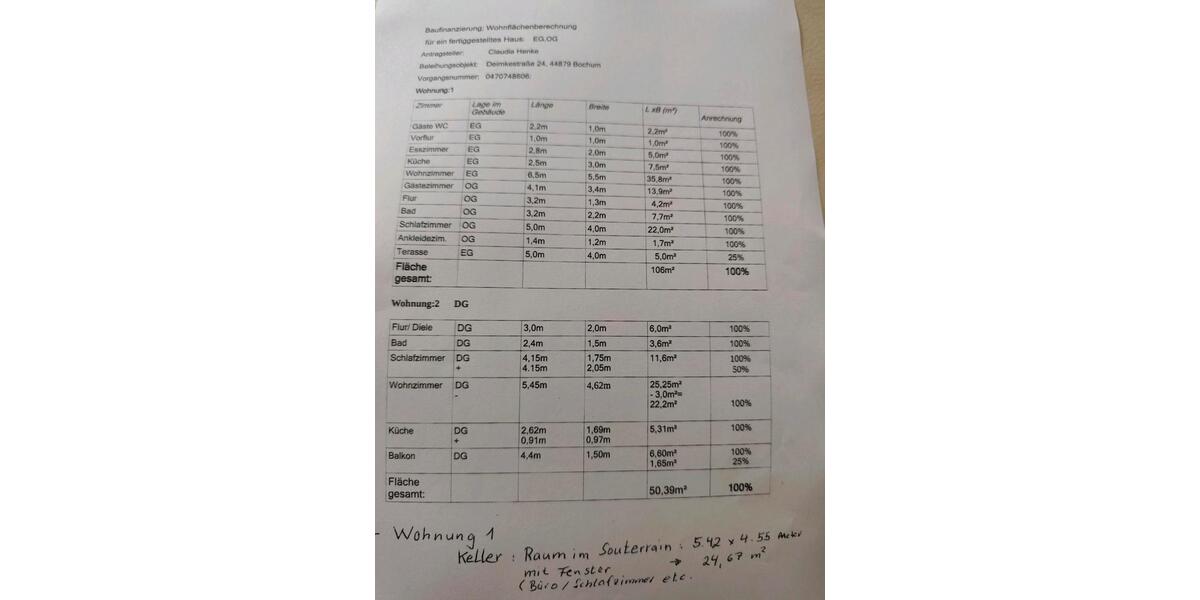 Baufinanzierung: Wohnflächenberechnung
für ein fertiggestelltes Haus: EG,OG
Antragsteller: Claudia Henke
Beleihungsobjekt: Deimkestraße 24, 44879 Bochum
Vorgangsnummer: 0470748606:
Wohnung:1
Zimmer Lage im Gebäude Länge Breite L xB (m²) Anrechnung
Gäste WC EG 2,2m 1,0m 2,2m² 100%
Vorflur EG 1,0m 1,0m 1,0m² 100%
Esszimmer EG 2,8m 2,0m 5,0m² 100%
Küche EG 2,5m 3,0m 7,5m² 100%
Wohnzimmer EG 6,5m 5,5m 35,8m² 100%
Gästezimmer OG 4,1m 3,4m 13,9m² 100%
Flur OG 3,2m 1,3m 4,2m² 100%
Bad OG 3,2m 2,2m 7,7m² 100%
Schlafzimmer OG 5,0m 4,0m 22,0m² 100%
Ankleidezim. OG 1,4m 1,2m 1,7m² 100%
Terasse EG 5,0m 4,0m 5,0m² 25%
Fläche gesamt: 106m² 100%
Wohnung:2 DG
Flur/ Diele DG 3,0m 2,0m 6,0m² 100%
Bad DG 2,4m 1,5m 3,6m² 100%
Schlafzimmer DG 4,15m 1,75m 11,6m² 100%
+ 4.15m 2,05m 50%
Wohnzimmer DG 5,45m 4,62m 25,25m²
- - 3,0m²=
22,2m² 100%
Küche DG 2,62m 1,69m 5,31m² 100%
+ 0,91m 0,97m
Balkon DG 4,4m 1,50m 6,60m² 100%
1,65m² 25%
Fläche gesamt: 50,39m² 100%
- Wohnung 1
Keller : Raum im Souterrain : 5.42 x 4.55 Meter
mit Fenster → 24,67 m²
(Büro / Schlafzimmer etc.